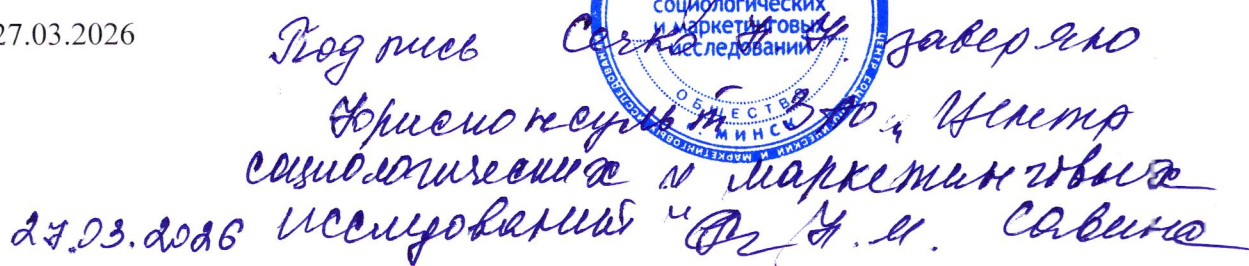 27.03.2026
социологических
и маркетинговых
исследований
ОБЩЕСТВО
МИНСК
Подпись Сечко Н.Н. заверяю
Юрисконсульт ЗАО „Центр
социологических и маркетинговых
27.03.2026 исследований" Н.М. Савина